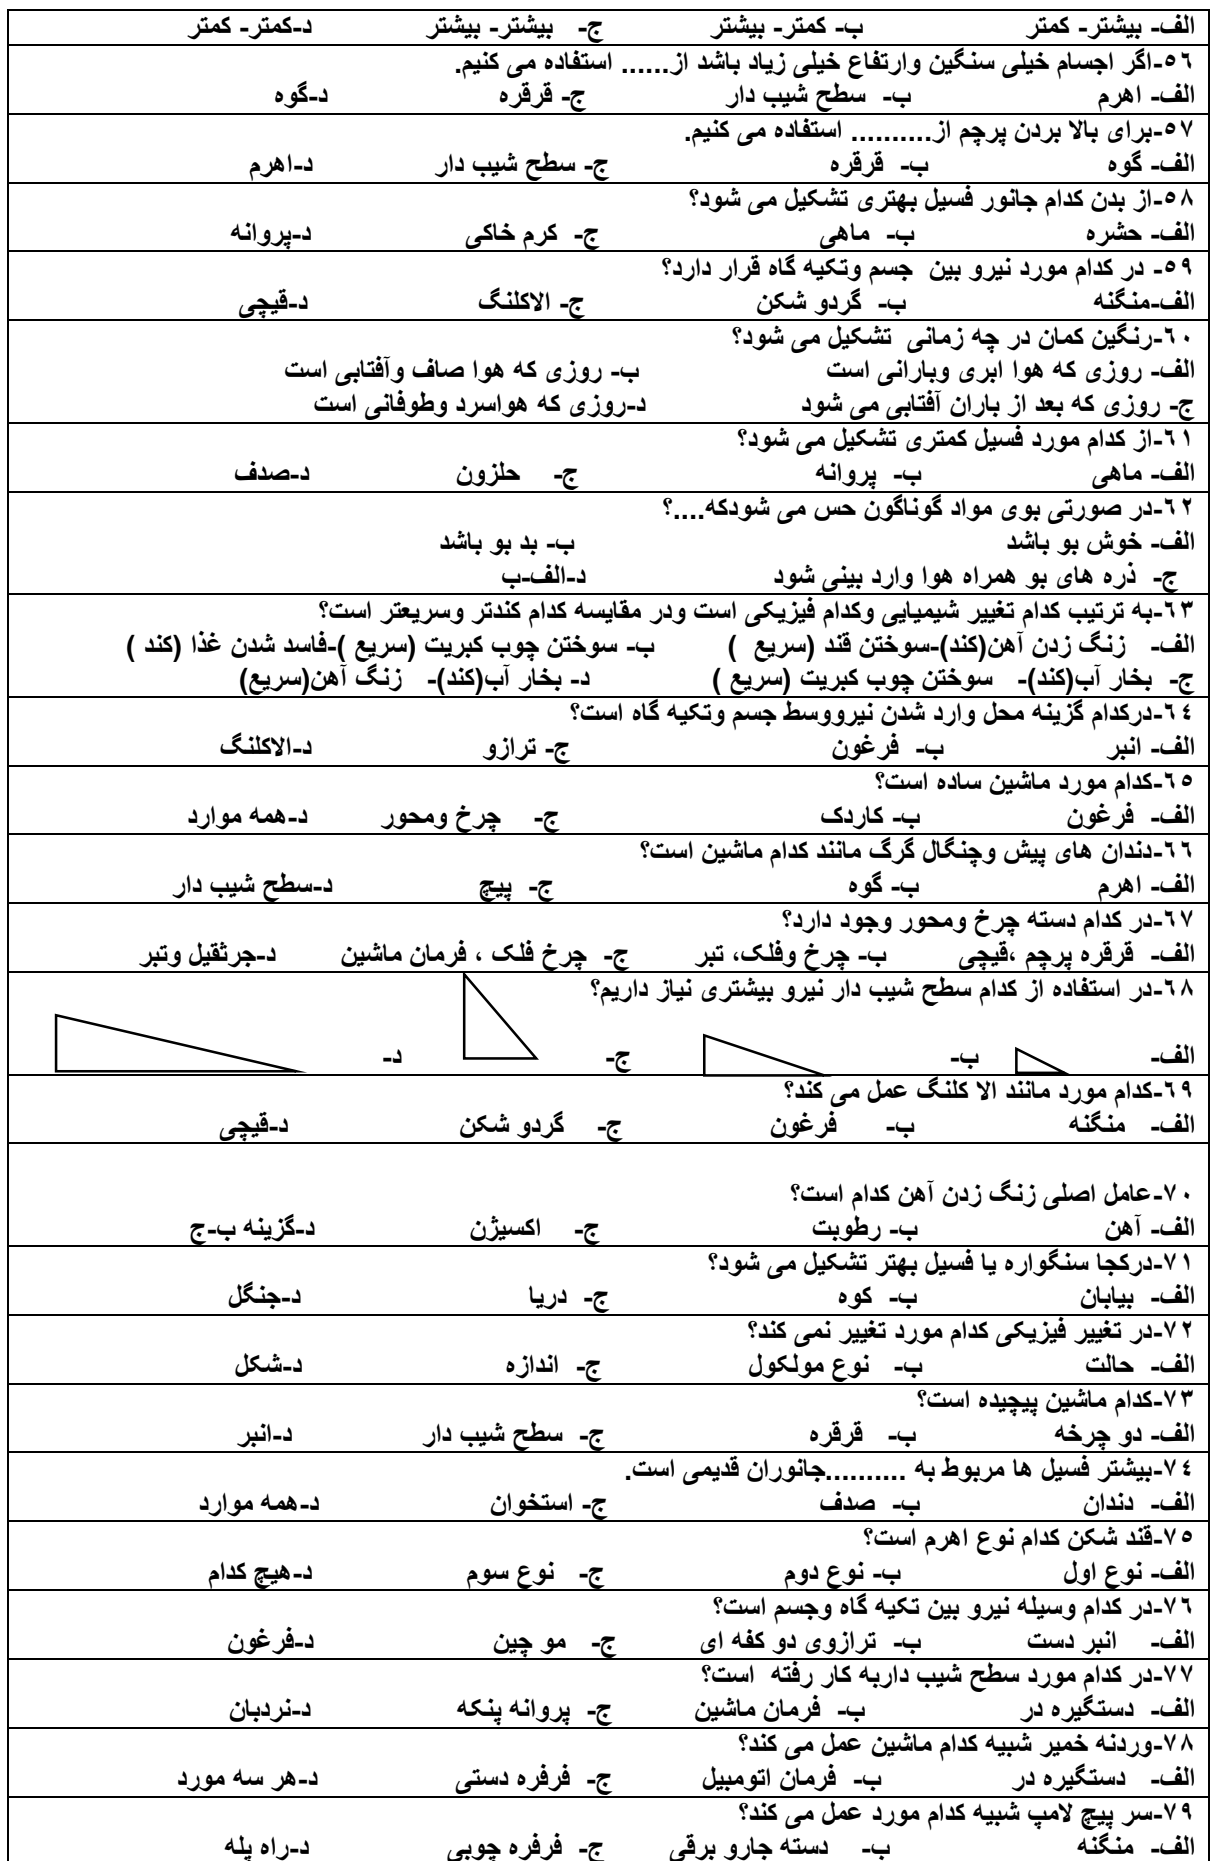 الف- بیشتر- کمتر ب- کمتر- بیشتر ج- بیشتر- بیشتر د-کمتر- کمتر
۵۶-اگر اجسام خیلی سنگین وارتفاع خیلی زیاد باشد از...... استفاده می کنیم.
الف- اهرم ب- سطح شیب دار ج- قرقره د-گوه
۵۷-برای بالا بردن پرچم از.......... استفاده می کنیم.
الف- گوه ب- قرقره ج- سطح شیب دار د-اهرم
۵۸-از بدن کدام جانور فسیل بهتری تشکیل می شود؟
الف- حشره ب- ماهی ج- کرم خاکی د-پروانه
۵۹- در کدام مورد نیرو بین جسم وتکیه گاه قرار دارد؟
الف-منگنه ب- گردو شکن ج- الاکلنگ د-قیچی
۶۰-رنگین کمان در چه زمانی تشکیل می شود؟
الف- روزی که هوا ابری وبارانی است ب- روزی که هوا صاف وآفتابی است
ج- روزی که بعد از باران آفتابی می شود د-روزی که هواسرد وطوفانی است
۶۱-از کدام مورد فسیل کمتری تشکیل می شود؟
الف- ماهی ب- پروانه ج- حلزون د-صدف
۶۲-در صورتی بوی مواد گوناگون حس می شودکه....؟
الف- خوش بو باشد ب- بد بو باشد
ج- ذره های بو همراه هوا وارد بینی شود د-الف-ب
۶۳-به ترتیب کدام تغییر شیمیایی وکدام فیزیکی است ودر مقایسه کدام کندتر وسریعتر است؟
الف- زنگ زدن آهن(کند)-سوختن قند (سریع ) ب- سوختن چوب کبریت (سریع )-فاسد شدن غذا (کند )
ج- بخار آب(کند)- سوختن چوب کبریت (سریع ) د- بخار آب(کند)- زنگ آهن(سریع)
۶۴-درکدام گزینه محل وارد شدن نیرووسط جسم وتکیه گاه است؟
الف- انبر ب- فرغون ج- ترازو د-الاکلنگ
۶۵-کدام مورد ماشین ساده است؟
الف- فرغون ب- کاردک ج- چرخ ومحور د-همه موارد
۶۶-دندان های پیش وچنگال گرگ مانند کدام ماشین است؟
الف- اهرم ب- گوه ج- پیچ د-سطح شیب دار
۶۷-در کدام دسته چرخ ومحور وجود دارد؟
الف- قرقره پرچم ،قیچی ب- چرخ وفلک، تبر ج- چرخ فلک ، فرمان ماشین د-جرثقیل وتبر
۶۸-در استفاده از کدام سطح شیب دار نیرو بیشتری نیاز داریم؟
الف- ب- ج- د-
۶۹-کدام مورد مانند الا کلنگ عمل می کند؟
الف- منگنه ب- فرغون ج- گردو شکن د-قیچی
۷۰-عامل اصلی زنگ زدن آهن کدام است؟
الف- آهن ب- رطوبت ج- اکسیژن د-گزینه ب-ج
۷۱-درکجا سنگواره یا فسیل بهتر تشکیل می شود؟
الف- بیابان ب- کوه ج- دریا د-جنگل
۷۲-در تغییر فیزیکی کدام مورد تغییر نمی کند؟
الف- حالت ب- نوع مولکول ج- اندازه د-شکل
۷۳-کدام ماشین پیچیده است؟
الف- دو چرخه ب- قرقره ج- سطح شیب دار د-انبر
۷۴-بیشتر فسیل ها مربوط به ..........جانوران قدیمی است.
الف- دندان ب- صدف ج- استخوان د-همه موارد
۷۵-قند شکن کدام نوع اهرم است؟
الف- نوع اول ب- نوع دوم ج- نوع سوم د-هیچ کدام
۷۶-در کدام وسیله نیرو بین تکیه گاه وجسم است؟
الف- انبر دست ب- ترازوی دو کفه ای ج- مو چین د-فرغون
۷۷-در کدام مورد سطح شیب داربه کار رفته است؟
الف- دستگیره در ب- فرمان ماشین ج- پروانه پنکه د-نردبان
۷۸-وردنه خمیر شبیه کدام ماشین عمل می کند؟
الف- دستگیره در ب- فرمان اتومبیل ج- فرفره دستی د-هر سه مورد
۷۹-سر پیچ لامپ شبیه کدام مورد عمل می کند؟
الف- منگنه ب- دسته جارو برقی ج- فرفره چوبی د-راه پله